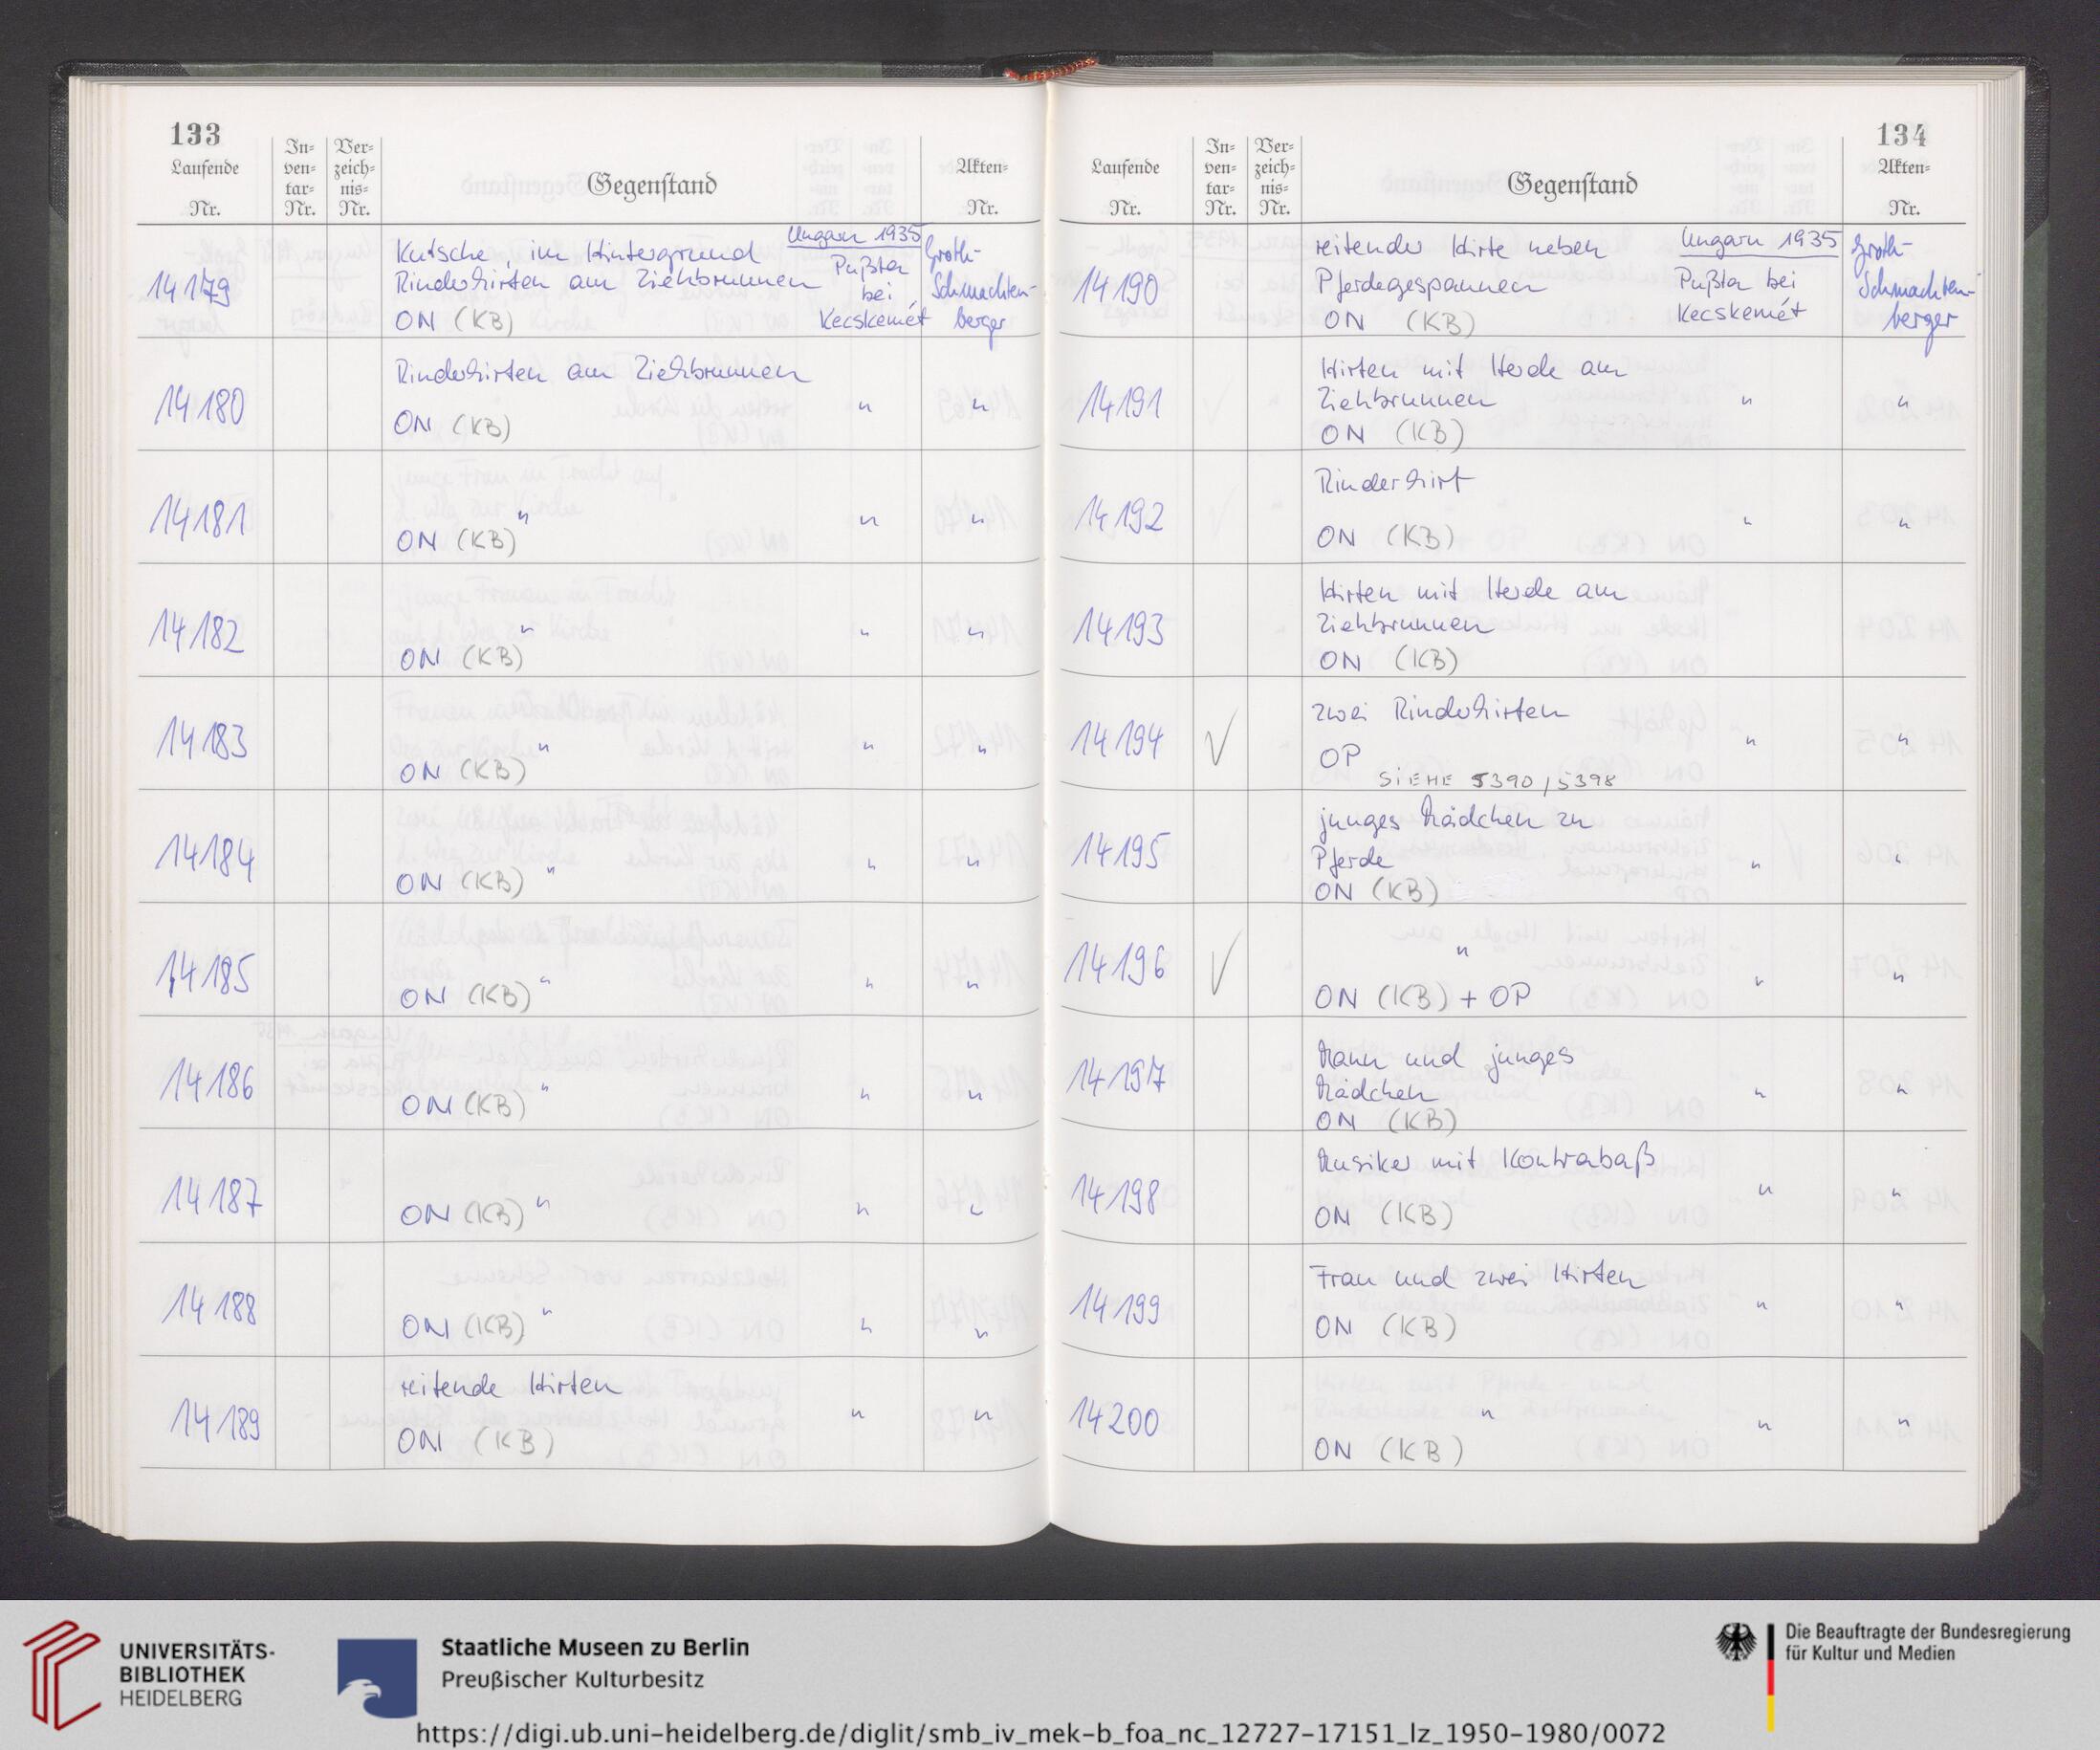 133
Laufende Nr.
In-ven-tar-Nr.
Ver-zeich-nis-Nr.
Gegenstand
Akten-Nr.
14179
Kutsche, im Hintergrund
Rinderhirten am Ziehbrunnen
ON (KB)
Ungarn 1935
Pußta
bei
Kecskemét
Groth-
Schmachten-
berger
14180
Rinderhirten am Ziehbrunnen
ON (KB)
" "
14181
"
ON (KB)
" "
14182
"
ON (KB)
" "
14183
"
ON (KB)
" "
14184
ON (KB) "
" "
14185
ON (KB) "
" "
14186
ON (KB) "
" "
14187
ON (KB) "
" "
14188
ON (KB) "
" "
14189
reitende Hirten
ON (KB)
" "
134
Laufende Nr.
In-ven-tar-Nr.
Ver-zeich-nis-Nr.
Gegenstand
Akten-Nr.
14190
reitender Hirte neben
Pferdegespannen
ON (KB)
Ungarn 1935
Pußta bei
Kecskemét
Groth-
Schmachten-
berger
14191
Hirten mit Herde am
Ziehbrunnen
ON (KB)
" "
14192
Rinderhirt
ON (KB)
" "
14193
Hirten mit Herde am
Ziehbrunnen
ON (KB)
14194 √
zwei Rinderhirten
OP
SIEHE 5390/5398
" "
14195
junges Mädchen zu
Pferde
ON (KB)
" "
14196 √
"
ON (KB) + OP
" "
14197
Mann und junges
Mädchen
ON (KB)
" "
14198
Musiker mit Kontrabaß
ON (KB)
" "
14199
Frau und zwei Hirten
ON (KB)
" "
14200
"
ON (KB)
" "
UNIVERSITÄTS-
BIBLIOTHEK
HEIDELBERG
Staatliche Museen zu Berlin
Preußischer Kulturbesitz
Die Beauftragte der Bundesregierung
für Kultur und Medien
https://digi.ub.uni-heidelberg.de/diglit/smb_iv_mek-b_foa_nc_12727-17151_lz_1950-1980/0072